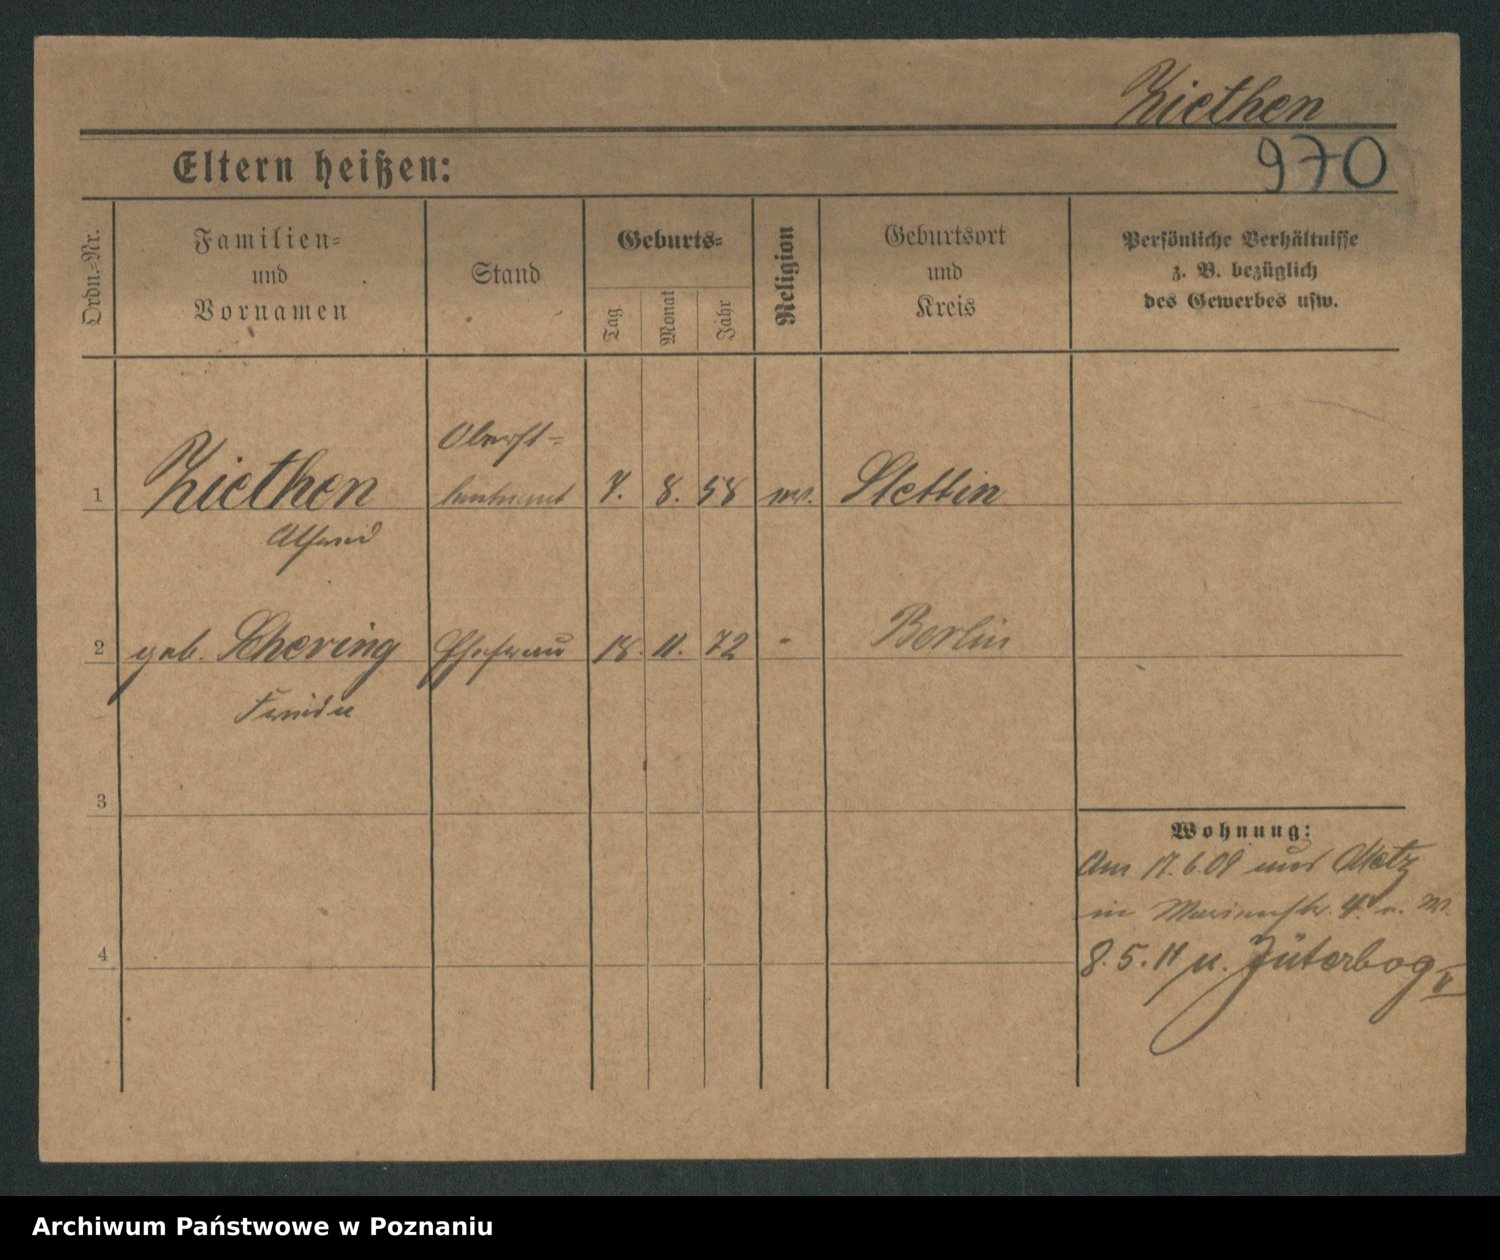 Ziethen
970
Eltern heißen:
Ordn.-Nr.
Familien-
und
Vornamen
Stand
Geburts-
Tag
Monat
Jahr
Religion
Geburtsort
und
Kreis
Persönliche Verhältnisse
z. B. bezüglich
des Gewerbes usw.
Oberst-
1 Ziethen leutnant 7. 8. 58 ev. Stettin
Alfred
2 geb. Schering Ehefrau 18. 11. 72 " Berlin
Frieda
3
Wohnung:
Am 17.6.09 aus Metz
in Marienstr. 4
4
8.5.11 u. Jüterbog
Archiwum Państwowe w Poznaniu